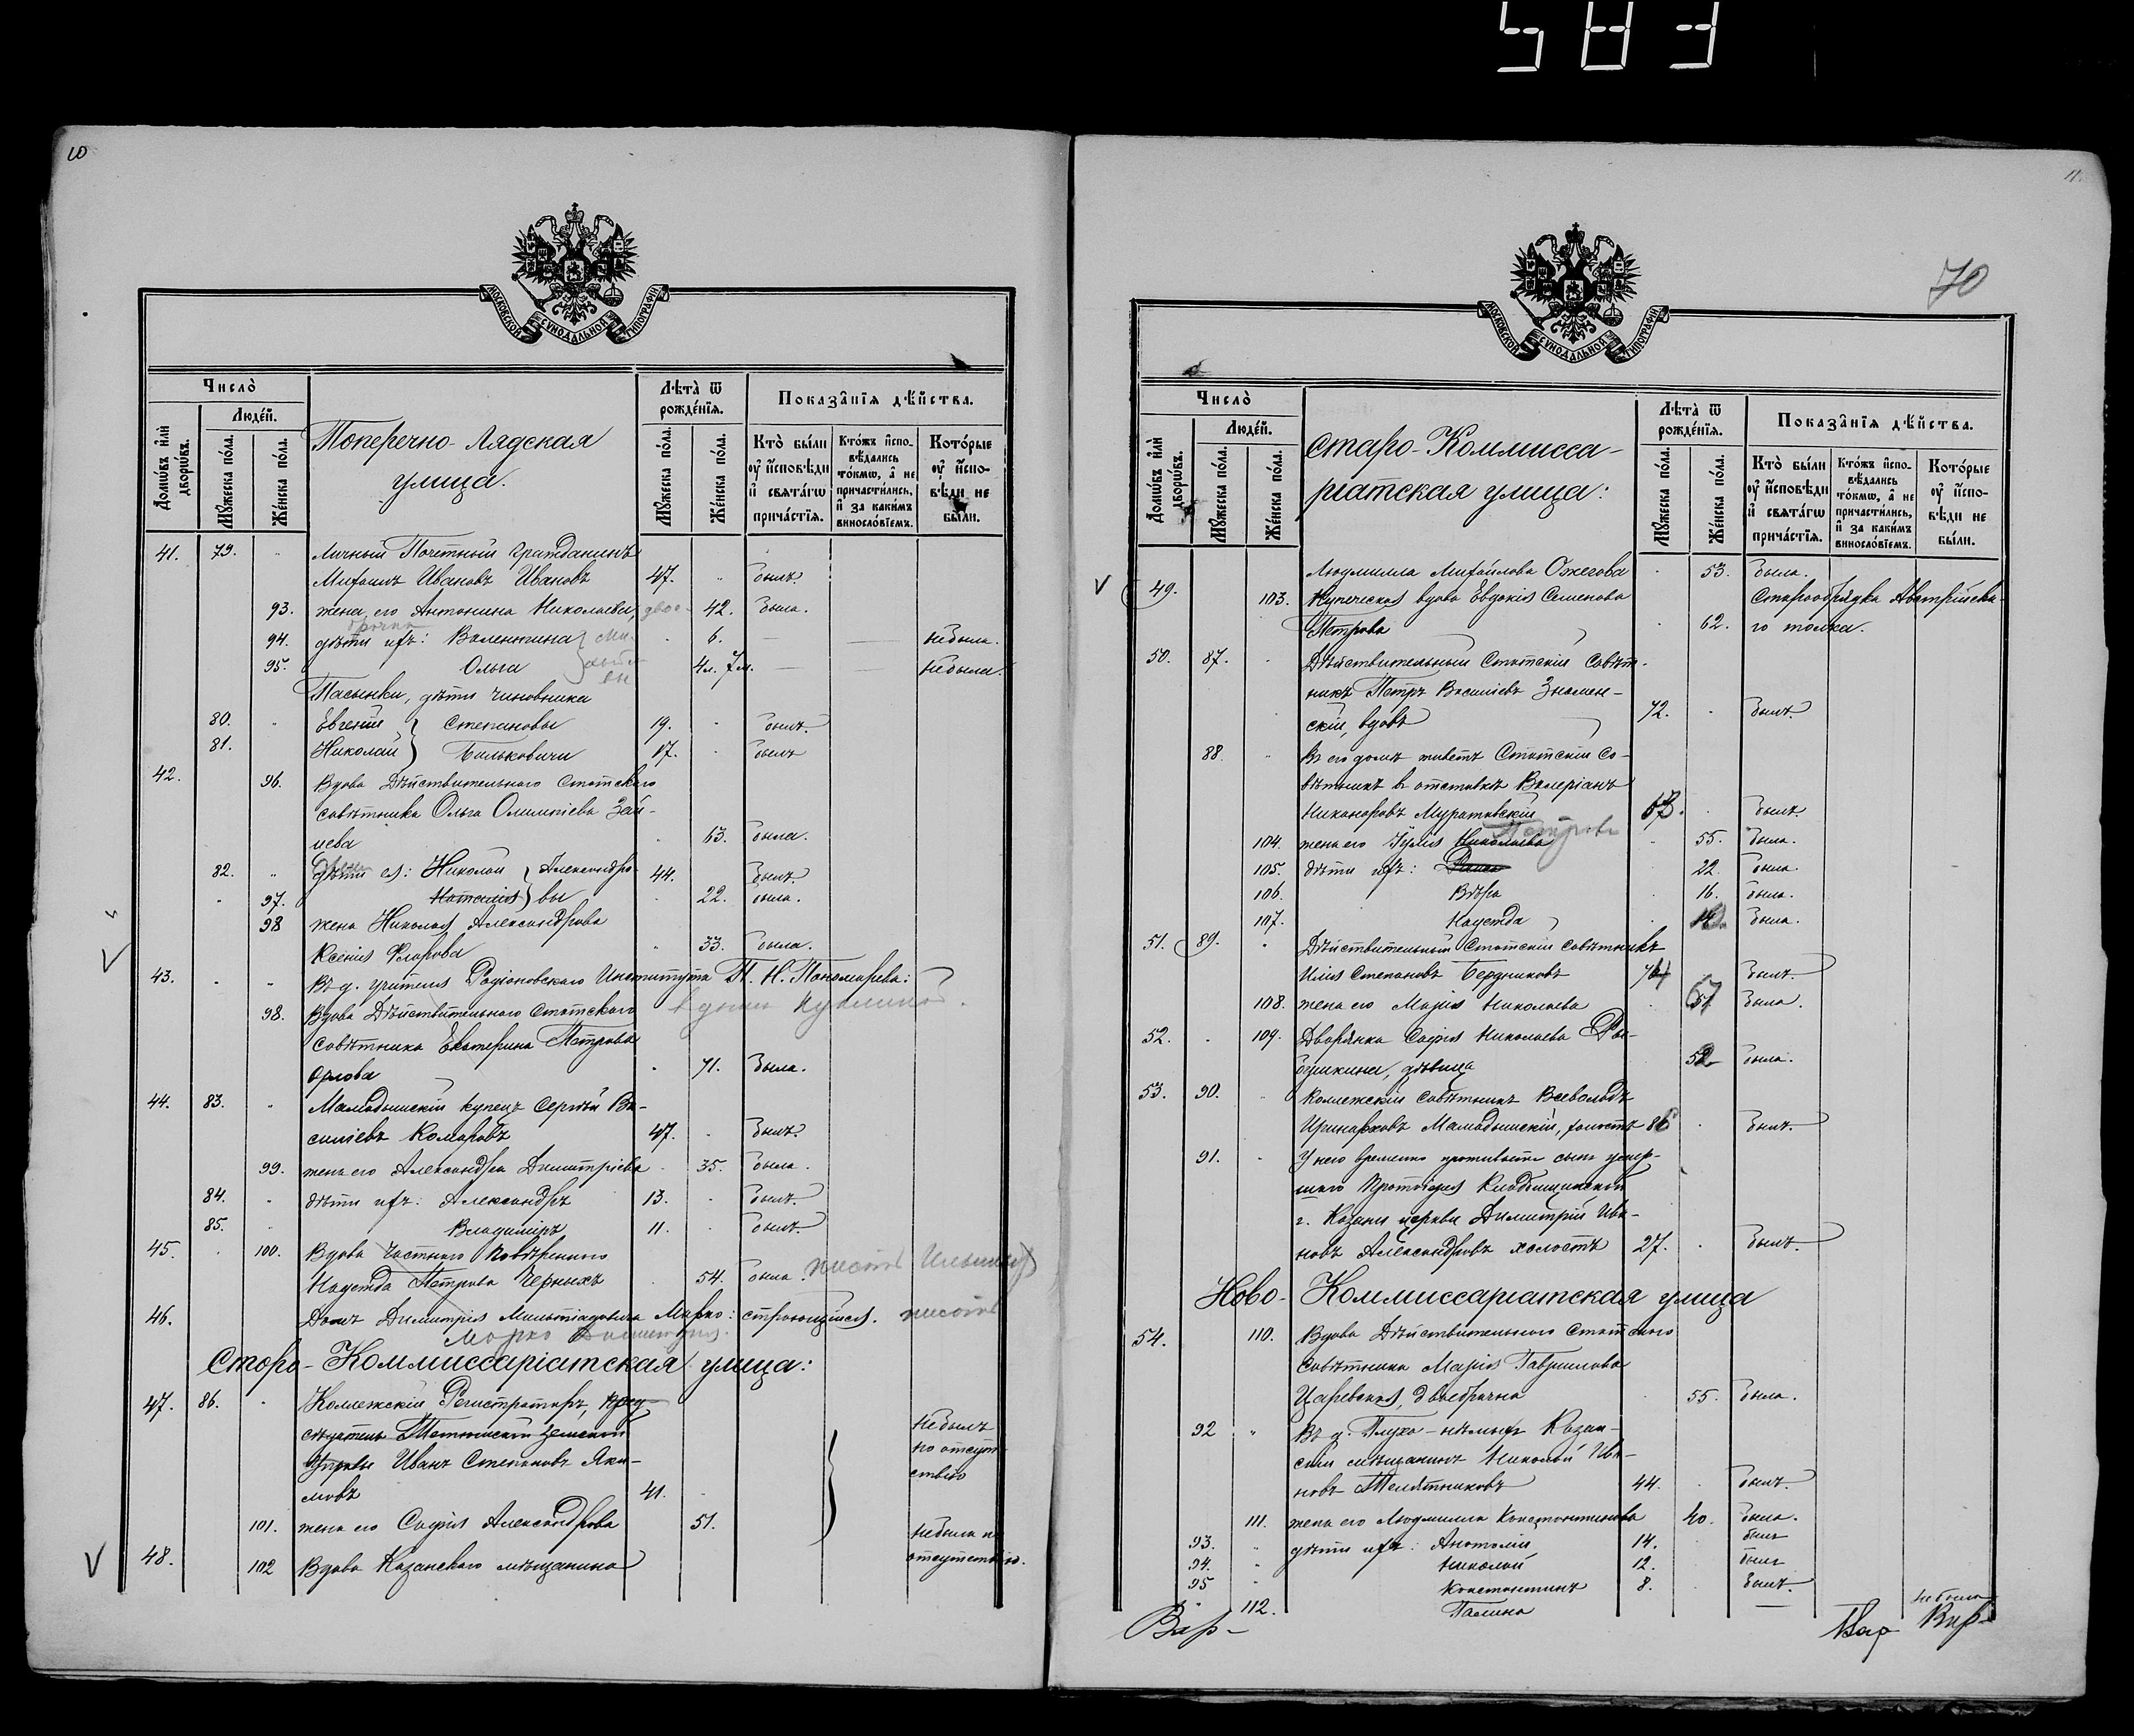 583
10
МОСКОВСКОЙ СѴНОДАЛЬНОЙ ТИПОГРАФІИ
Число̀
Домѡ́въ и҆лѝ дворѡ́въ.
Люде́й.
Мꙋ́жеска по́ла.
Же́нска по́ла.
Поперечно-Лядская
улица.
Лѣта̀ ѿ рожде́нїѧ.
Мꙋ́жеска по́ла.
Же́нска по́ла.
Показа̑нїѧ дѣ́йства.
Кто̀ бы́ли ᲂу҆ и҆́сповѣди и҆ свѧта́гѡ прича́стїѧ.
Кто́жъ и҆спо­вѣ́дались то́кмѡ, а҆ не причасти́лись, и҆ за каки́мъ винослѡ́вїемъ.
Кото́рые ᲂу҆ и҆́спо­вѣди не бы́ли.
41. 79. Личный Почетный Гражданинъ
Михаилъ Ивановъ Ивановъ 47. былъ.
93. жена его Антонина Николаева, двое- 42. была.
брачна
94. дѣти ихъ: Валентина 6. не была.
95. Ольга 4 л. 7 м. не была.
Пасынки, дѣти чиновника
80. Евгеній } Степановы 19. былъ.
81. Николай } Бильковичи 17. былъ
42. 96. Вдова Дѣйствительнаго Статскаго
совѣтника Ольга Олимпіева Зай-
цева 63. была.
82. дѣти ея: Николай } Александро- 44. былъ.
97. Наталія } вы 22. была.
98 жена Николая Александрова
Ксенія Флорова 33. была.
43. Въ д. учителя Родіоновскаго Института П. Н. Пономарева:
98. Вдова Дѣйствительнаго Статскаго в домѣ
совѣтника Екатерина Петрова
Орлова 71. была.
44. 83. Мамадышскій купецъ Сергѣй Ва-
сильевъ Комаровъ 47. былъ.
99. жена его Александра Димитріева 35. была.
84. дѣти ихъ: Александръ 13. былъ.
85. Владиміръ 11. былъ.
45. 100. Вдова Частнаго Повѣреннаго
Надежда Петрова Черныхъ 54. была. писать
46. Домъ Димитрія Мильтіадовича Марко: строющійся. писать
Марко
Старо-Коммиссаріатская улица:
47. 86. Коллежскій Регистраторъ, пред-
сѣдатель Тетюшской Земской
Управы Иванъ Степановъ Яки-
мовъ 41. Не былъ по отсут-
ствію
101. жена его Софія Александрова 51. Не была по
отсутствію.
48. 102 Вдова Казанскаго мѣщанина
11.
70
МОСКОВСКОЙ СѴНОДАЛЬНОЙ ТИПОГРАФІИ
Число̀
Домѡ́въ и҆лѝ дворѡ́въ.
Люде́й.
Мꙋ́жеска по́ла.
Же́нска по́ла.
Старо-Коммисса-
ріатская улица:
Лѣта̀ ѿ рожде́нїѧ.
Мꙋ́жеска по́ла.
Же́нска по́ла.
Показа̑нїѧ дѣ́йства.
Кто̀ бы́ли ᲂу҆ и҆́сповѣди и҆ свѧта́гѡ прича́стїѧ.
Кто́жъ и҆спо­вѣ́дались то́кмѡ, а҆ не причасти́лись, и҆ за каки́мъ винослѡ́вїемъ.
Кото́рые ᲂу҆ и҆́спо­вѣди не бы́ли.
Людмилла Михайлова Ожегова 53. была.
49. 103. Купеческая вдова Евдокія Семенова Старообрядка Австрійска-
Петрова 62. го толка.
50. 87. Дѣйствительный Статскій Совѣт-
никъ Петръ Васильевъ Знамен-
скій, вдовъ 72. былъ.
88. Въ его домѣ живетъ Статскій Со-
вѣтникъ въ отставкѣ Валеріанъ
Никаноровъ Муратовскій 63. былъ.
Петрова
104. жена его Юлія Николаева 55. была.
105. дѣти ихъ: 22. была.
106. Вѣра 16. была.
107. Надежда была.
51. 89. Дѣйствительный Статскій Совѣтникъ
Илія Степановъ Бердниковъ былъ.
108. жена его Марія Николаева 67 была.
52. 109. Дворянка Софія Николаева Ры-
бушкина, дѣвица 52 была.
53. 90. Коллежскій Совѣтникъ Всеволодъ
Иринарховъ Мамадышскій, холостъ 86 былъ.
91. У него временно проживаетъ сынъ умер-
шаго Протоіерея Кладбищенской
г. Казани церкви Димитрій Ива-
новъ Александровъ холостъ 27. былъ.
Ново-Коммиссаріатская улица
54. 110. Вдова Дѣйствительнаго Статскаго
Совѣтника Марія Гавриилова
Царевская, двоебрачна 55. была.
92 Въ д. Глухо-нѣмыхъ Казан-
скій мѣщанинъ Николай Ива-
новъ Телятниковъ 44. былъ.
111. жена его Людмилла Константинова 40. была.
93. дѣти ихъ: Анатолій 14. былъ
94. Николай 12. былъ
95 Константинъ 8. былъ.
112. Галина не была
Вар- Вар- Вар-